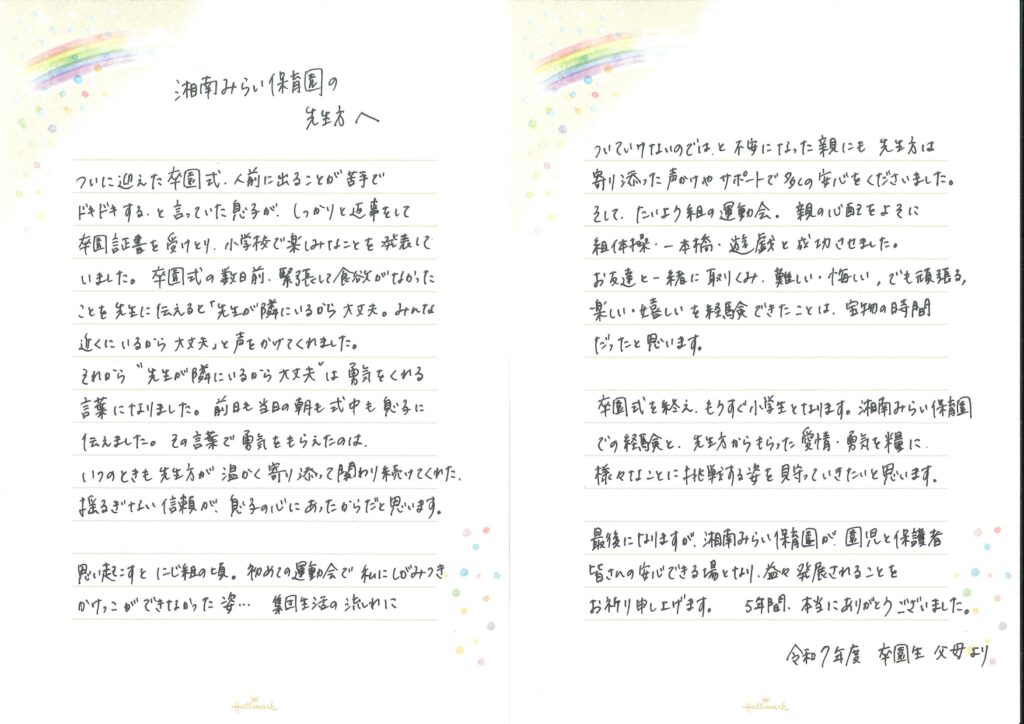 湘南みらい保育園の
先生方へ
ついに迎えた卒園式、人前に出ることが苦手で
ドキドキする、と言っていた息子が、しっかりと返事をして
卒園証書を受けとり、小学校で楽しみなことを発表して
いました。卒園式の数日前、緊張して食欲がなかった
ことを先生に伝えると「先生が隣にいるから大丈夫。みんな
近くにいるから大丈夫」と声をかけてくれました。
それから“先生が隣にいるから大丈夫”は勇気をくれる
言葉になりました。前日も当日の朝も式中も息子に
伝えました。その言葉で勇気をもらえたのは、
いつのときも先生方が温かく寄り添って関わり続けてくれた、
揺るぎない信頼が、息子の心にあったからだと思います。
思い起こすとにじ組の頃。初めての運動会で私にしがみつき
かけっこができなかった姿… 集団生活の流れに
Hallmark
ついていけないのでは、と不安になった親にも先生方は
寄り添った声かけやサポートで多くの安心をくださいました。
そして、たいよう組の運動会。親の心配をよそに
組体操・一本橋・遊戯と成功させました。
お友達と一緒に取りくみ、難しい・悔しい、でも頑張る、
楽しい・嬉しいを経験できたことは、宝物の時間
だったと思います。
卒園式を終え、もうすぐ小学生となります。湘南みらい保育園
での経験と、先生方からもらった愛情・勇気を糧に、
様々なことに挑戦する姿を見守っていきたいと思います。
最後になりますが、湘南みらい保育園が、園児と保護者
皆さんの安心できる場となり、益々発展されることを
お祈り申し上げます。 5年間、本当にありがとうございました。
令和7年度 卒園生 父母より
Hallmark